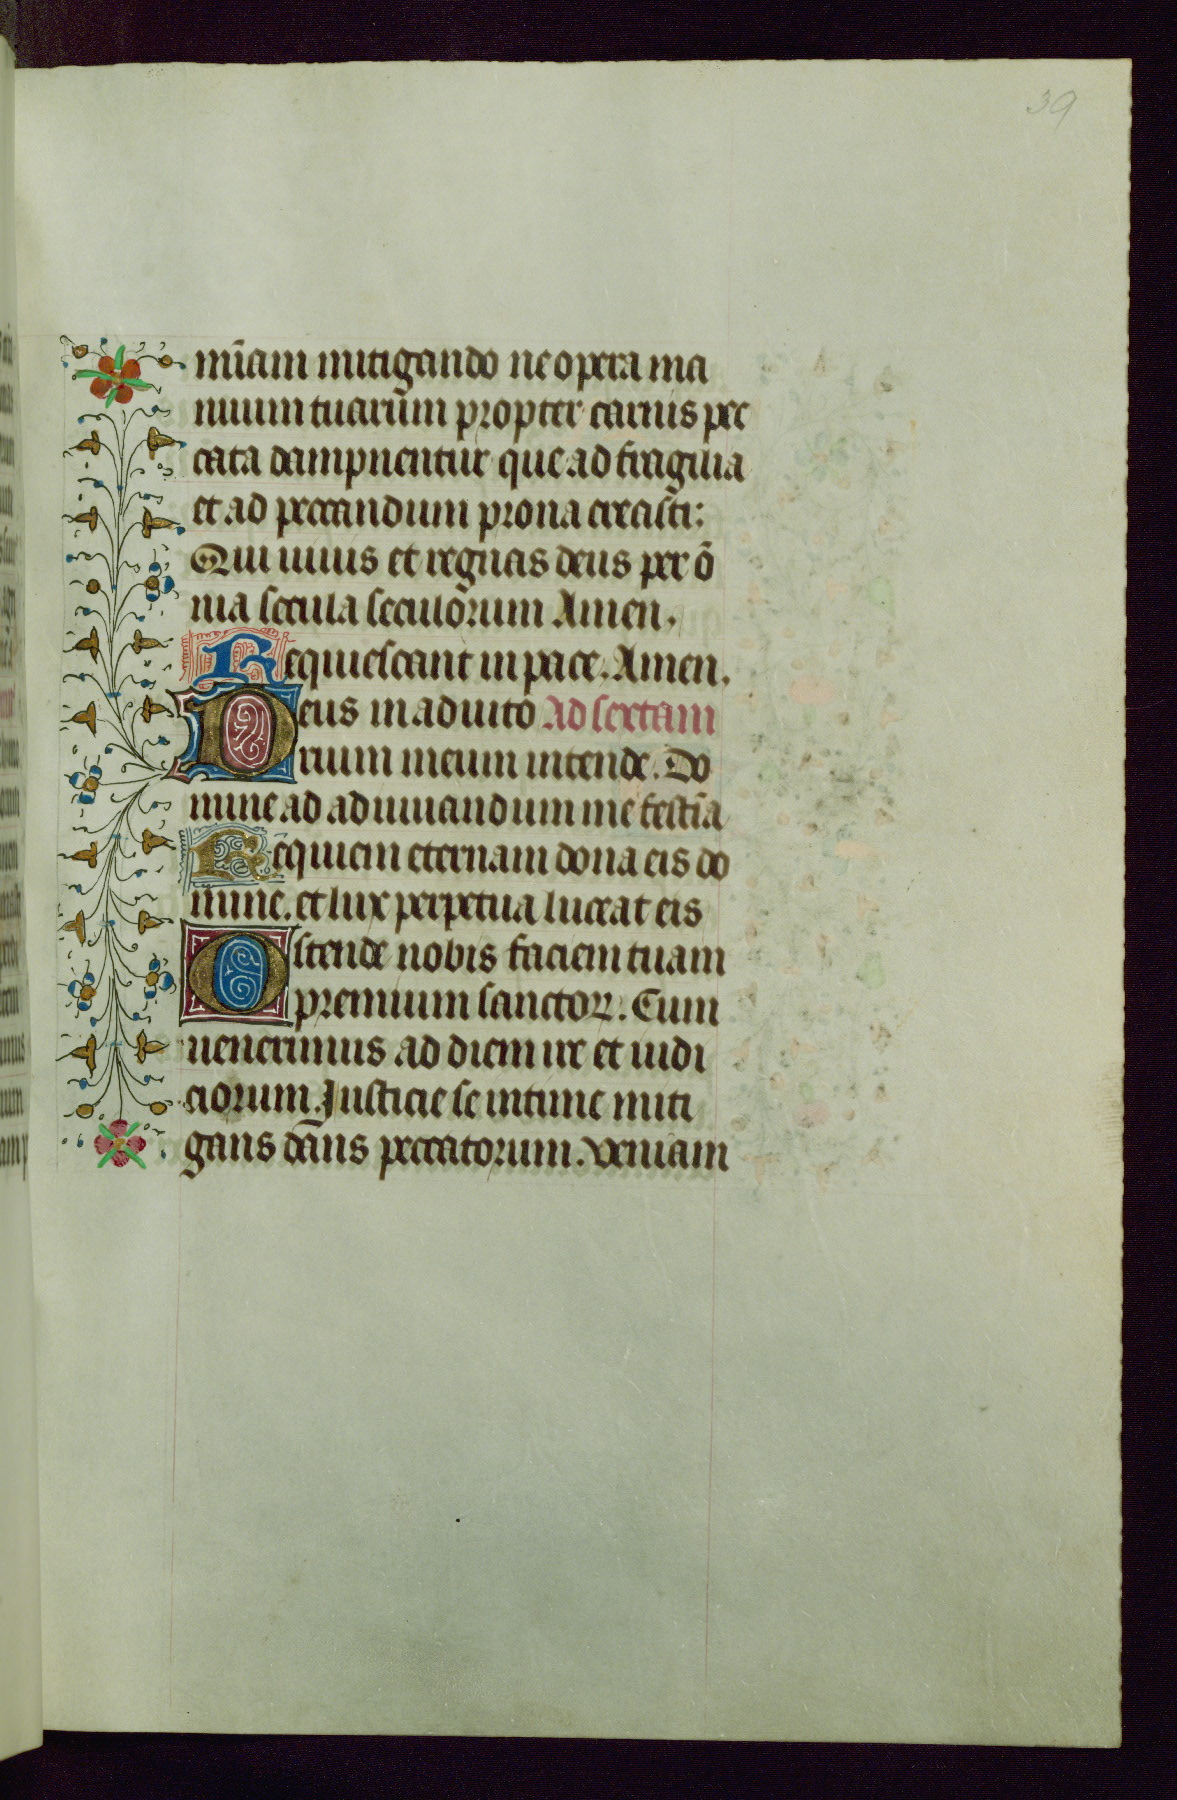 39
mīam mitigando ne opera ma
nuum tuarum propter carnis pec
cata dampnentur que ad fragilia
et ad peccandum prona creasti:
Qui uiuis et regnas deus per ō
nia secula seculorum Amen.
Requiescant in pace. Amen.
Deus in adiuto Ad sextam
rium meum intende. Do
mine ad adiuuandum me festīa
Requiem eternam dona eis do
mine. et lux perpetua luceat eis
Ostende nobis faciem tuam
premium sanctoꝝ. Cum
uenerimus ad diem ire et iudi
ciorum. Iusticie se intime miti
gans dāns peccatorum. veniam